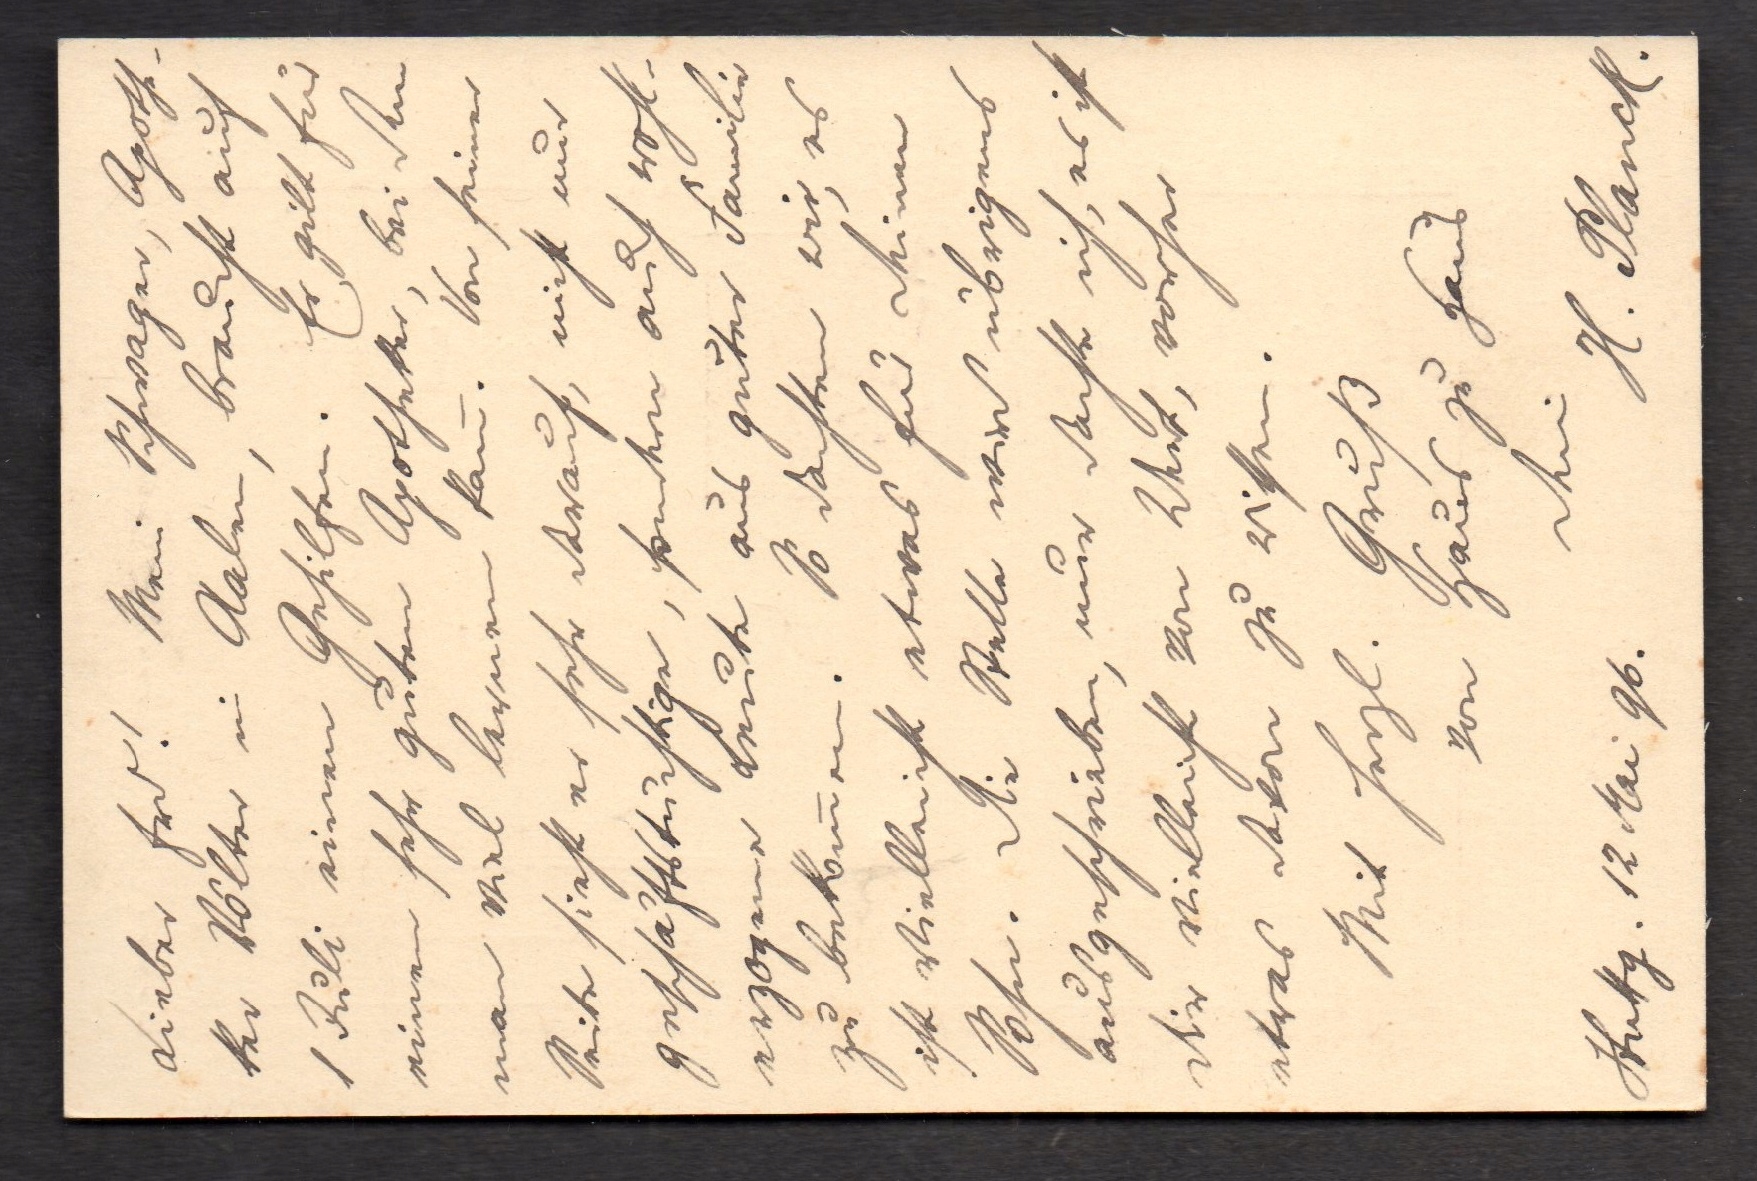 Lieber Frd! Mein Schwager, Apothe-
ker Völter in Aalen, braucht auf
1 Juli einen Gehilfen. Er gilt für
einen sehr guten Apotheker, bei dem
man viel lernen kan̄. Von seiner
Seite sieht er sehr darauf, nicht nur
geschäftstüchtige, sondern auch wohl-
erzogene Leute aus guter Familie
zu bekom̄en. So dachten wir, es
ist vielleicht etwas für deinen
Sohn. Die Stelle wird übrigens
ausgeschrieben, nur dachte ich, es ist
dir vielleicht von Wert, vorher
etwas davon zu wissen.
Mit herzl. Gruß
von Haus zu Haus
dein
H. Planck.
Stuttg. 12 Mai 96.